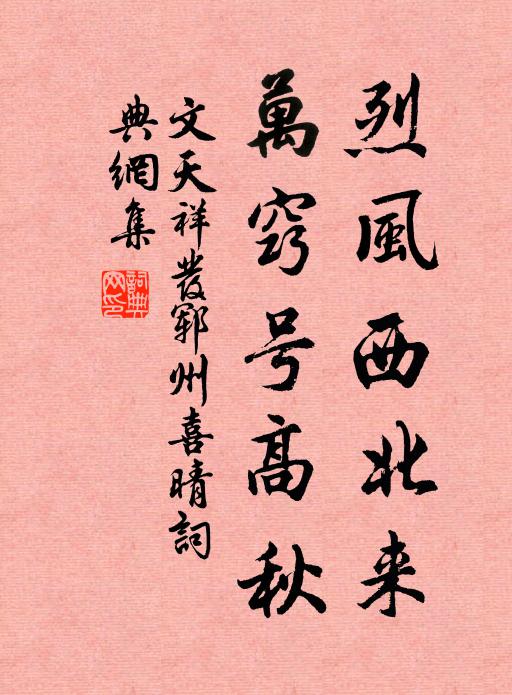 烈風西北来
萬窍号高秋
文天祥發鄆州喜晴詞
典網集
詞典网印